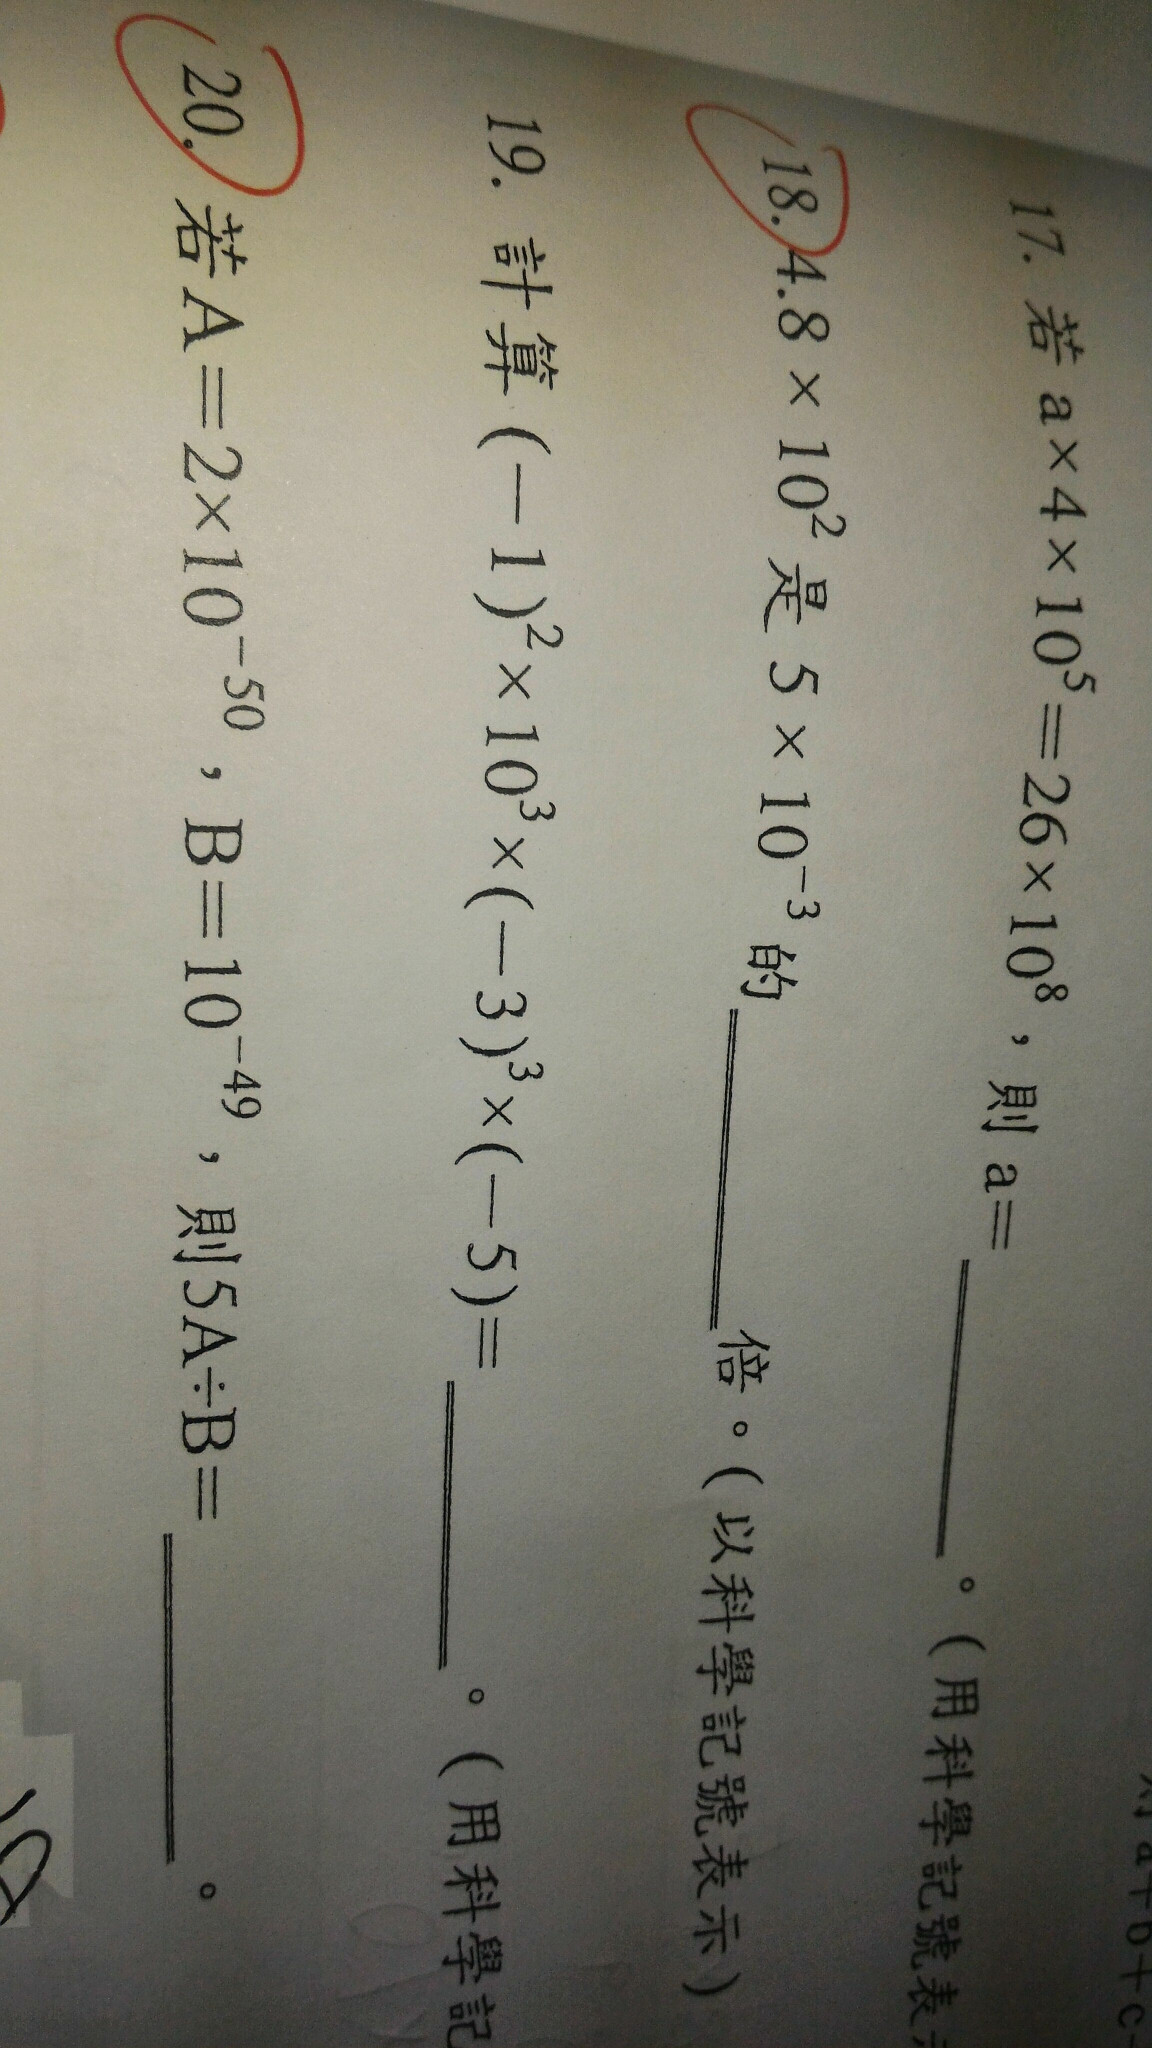 17. 若 a×4×10⁵=26×10⁸，則 a=______。(用科學記號表
18. 4.8×10²是 5×10⁻³的______倍。(以科學記號表示)
19. 計算(-1)²×10³×(-3)³×(-5)=______。(用科學記
20. 若A=2×10⁻⁵⁰，B=10⁻⁴⁹，則5A÷B=______。